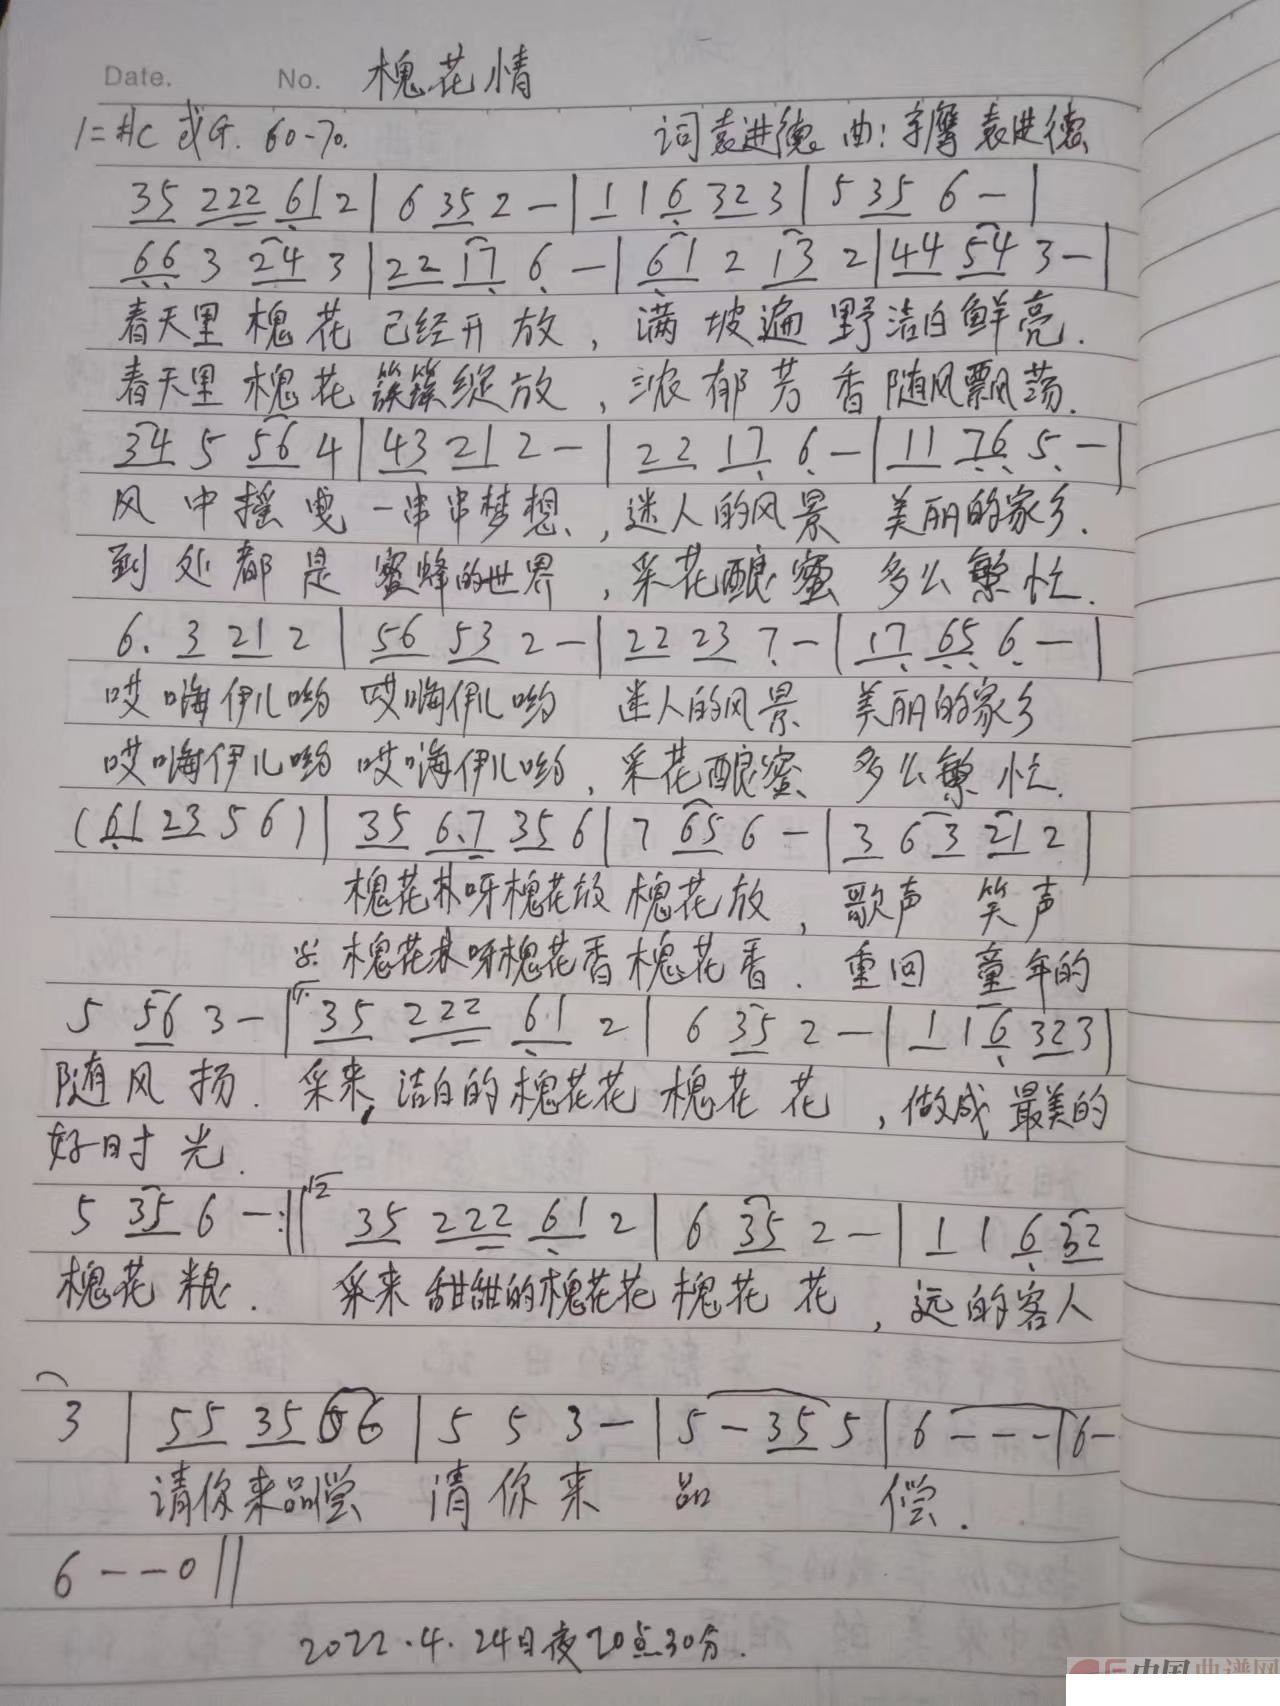 Date.  No.  槐花情
1=#C 或G. 60-70.  词袁进德 曲：宇鹰 袁进德
35 222 61 2 | 6 35 2 — | 1 1 6 32 3 | 5 35 6 — |
66 3 24 3 | 22 17 6 — | 61 2 13 2 | 44 54 3 — |
春天里 槐花 已经开放，满坡遍野洁白鲜亮.
春天里 槐花 簇簇绽放，浓郁芳香随风飘荡.
34 5 56 4 | 43 21 2 — | 22 17 6 — | 11 76 5 — |
风中摇曳一串串梦想，迷人的风景 美丽的家乡.
到处都是蜜蜂的世界，采花酿蜜 多么繁忙.
6. 3 21 2 | 56 53 2 — | 22 23 7 — | 17 65 6 — |
哎嗨伊儿哟 哎嗨伊儿哟 迷人的风景 美丽的家乡
哎嗨伊儿哟 哎嗨伊儿哟，采花酿蜜 多么繁忙.
(61 23 5 6) | 35 6.7 35 6 | 7 65 6 — | 3 6 3 21 2 |
槐花林呀槐花放 槐花放，歌声 笑声
槐花林呀槐花香 槐花香. 重回 童年的
5 56 3 — | 1. 35 222 61 2 | 6 35 2 — | 1 1 6 32 3 |
随风扬. 采来,洁白的槐花花 槐花花，做成最美的
好时光.
5 35 6 — :|| 2 35 222 61 2 | 6 35 2 — | 1 1 6 32
槐花粮. 采来甜甜的槐花花 槐花花，远的客人
3 | 55 35 66 | 5 5 3 — | 5 — 35 5 | 6 — — — | 6 —
请你来品偿 请你来 品 偿.
6 — — 0 ||
2022.4.24日夜20点30分.
中国曲谱网